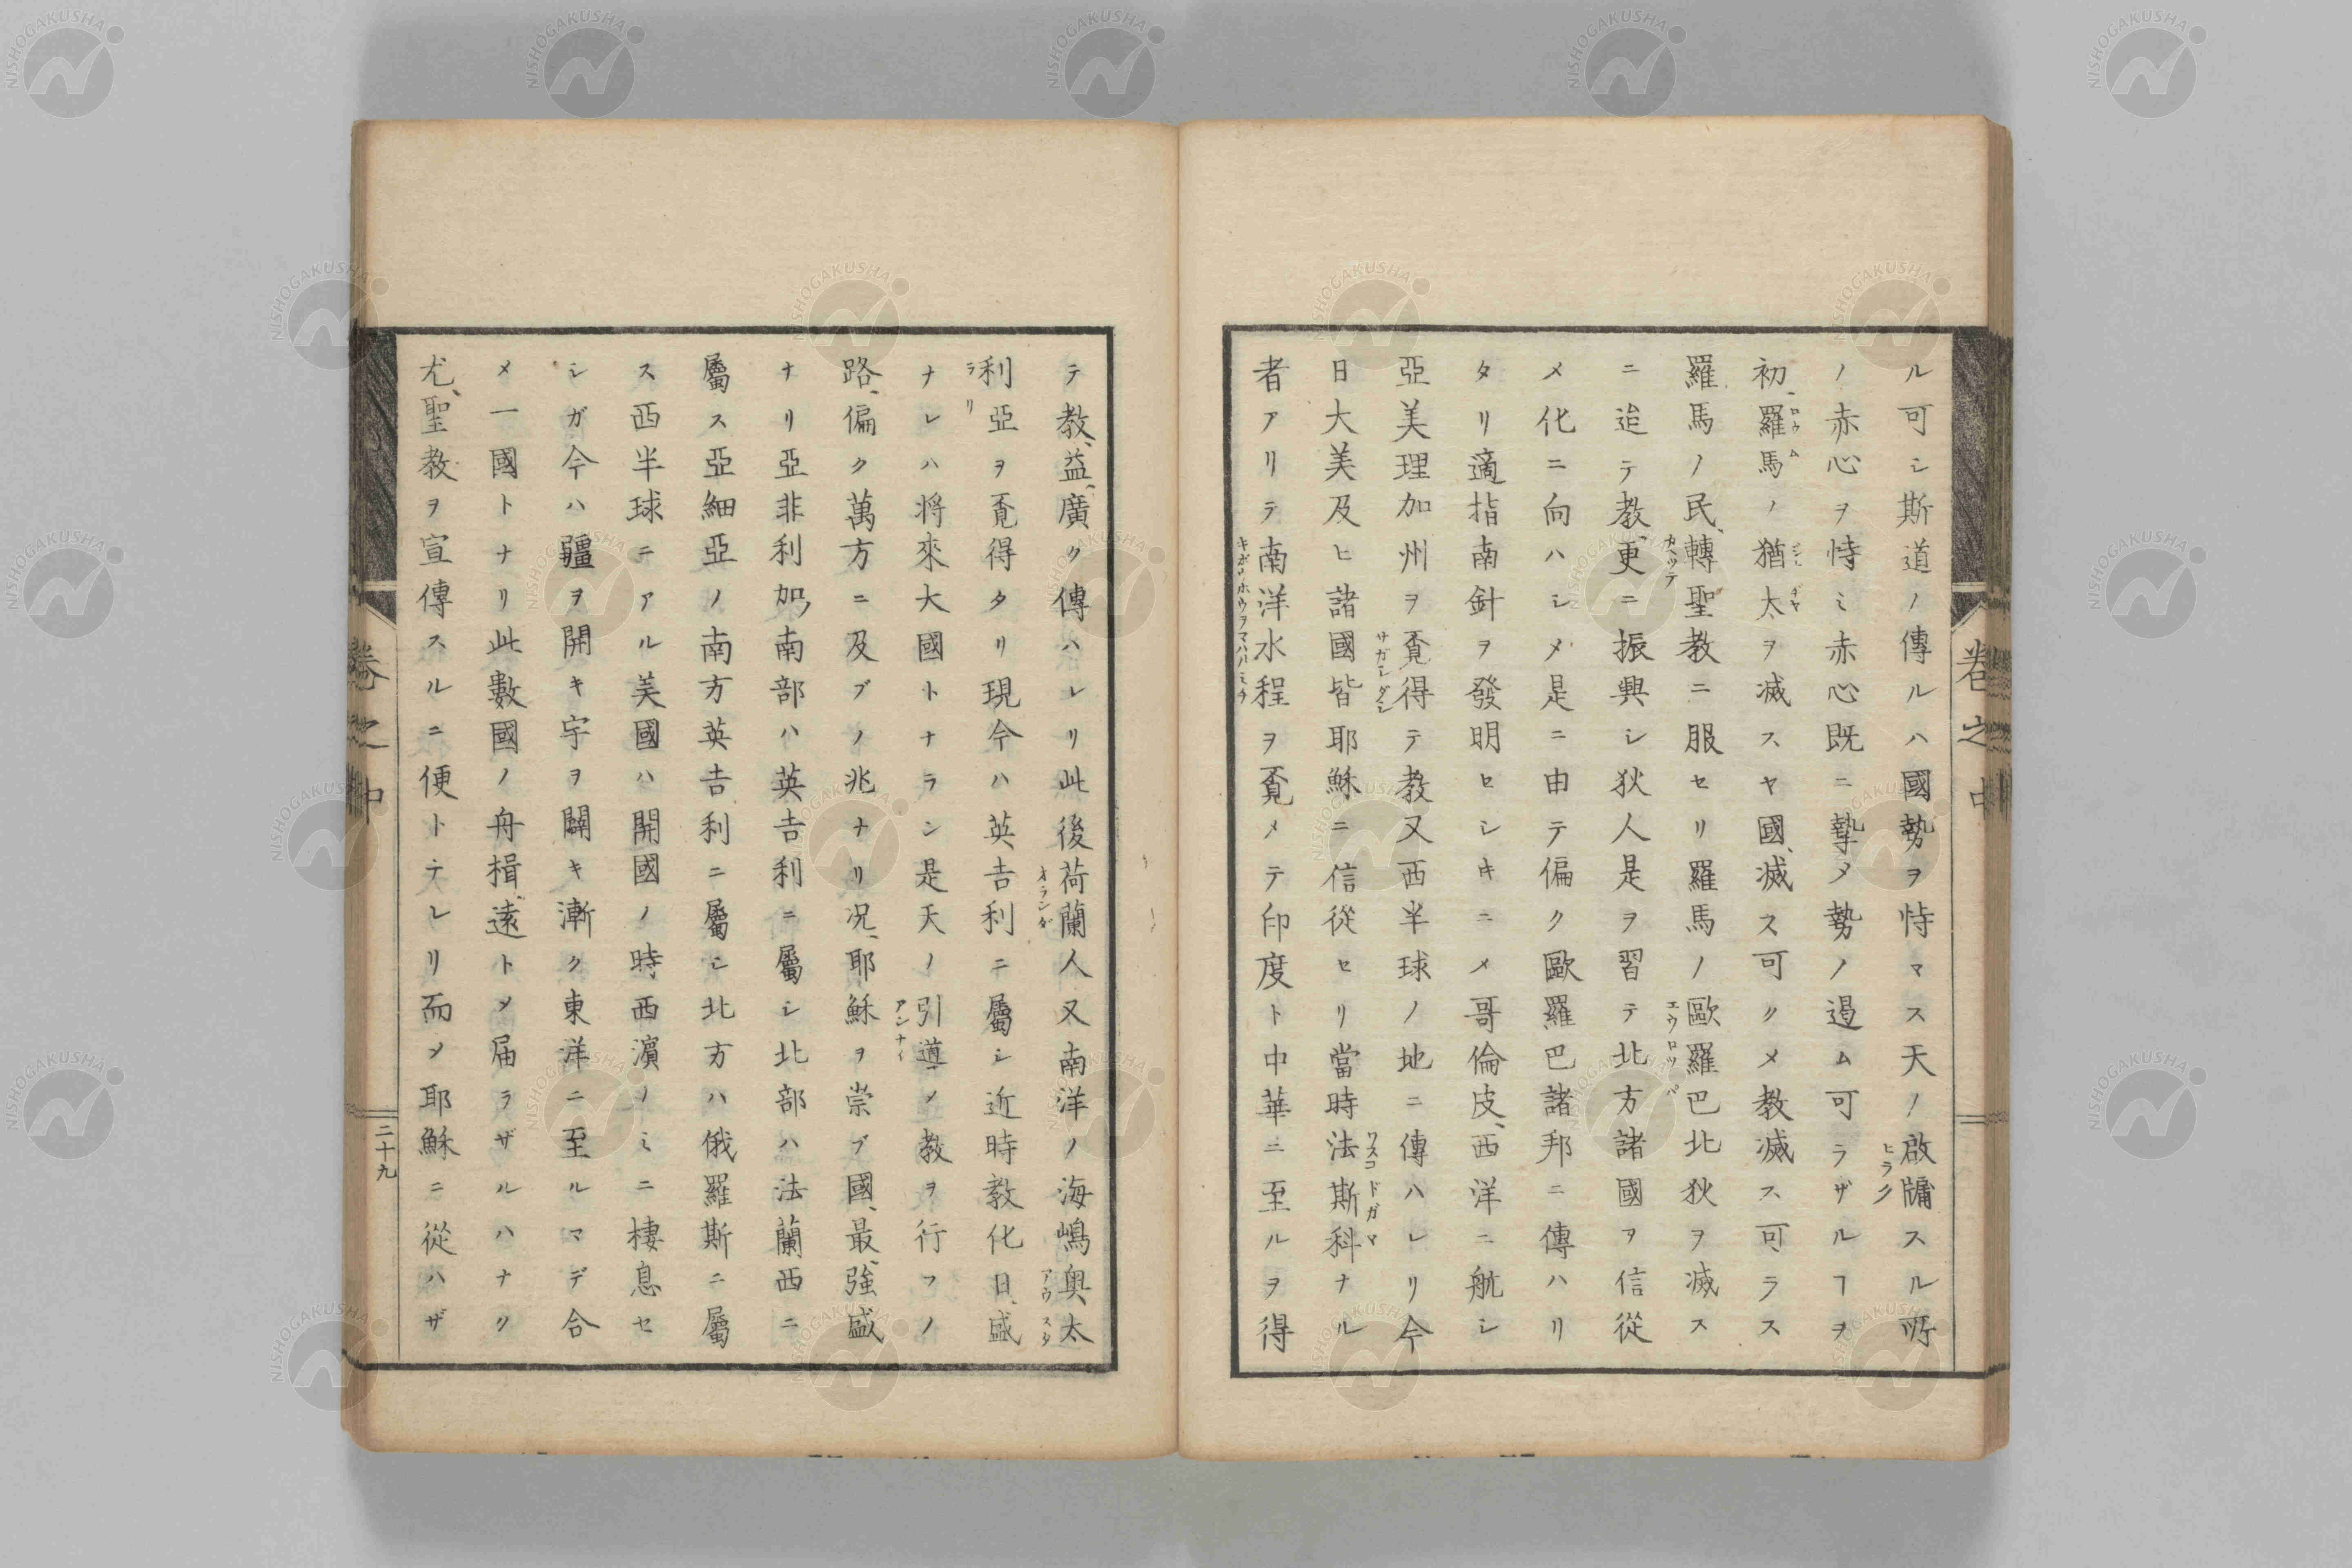 ル可シ斯道ノ傳ルハ國勢ヲ恃マス天ノ啟牖スル所
ヒラク
ノ赤心ヲ恃ミ赤心既ニ摯メ勢ノ遏ム可ラザルヿヲ
初、羅馬ノ猶太ヲ滅スヤ國、滅ス可クメ教滅ス可ラス
ロウム
羅馬ノ民、轉聖教ニ服セリ羅馬ノ歐羅巴北狄ヲ滅ス
カヘツテ
エウロツパ
ニ迨テ教、更ニ振興シ狄人是ヲ習テ北方諸國ヲ信從
メ化ニ向ハシメ是ニ由テ偏ク歐羅巴諸邦ニ傳ハリ
タリ適指南針ヲ發明セシキニメ哥倫皮、西洋ニ航シ
亞美理加州ヲ覔得テ教又西半球ノ地ニ傳ハレリ今
サガシダシ
日大美及ヒ諸國皆耶穌ニ信從セリ當時法斯科ナル
ワスコドガマ
者アリテ南洋水程ヲ覔メテ印度ト中華ニ至ルヲ得
キボリホウヲマハルミチ
テ教、益、廣ク傳ハレリ此後荷蘭人又南洋ノ海嶋奥太
オランダ
アウスタ
利亞ヲ覔得タリ現今ハ英吉利ニ屬シ近時教化日、盛
ラリ
ナレハ将來大國トナラン是天ノ引道メ教ヲ行フノ
アンナイ
路、偏ク萬方ニ及ブノ兆ナリ况、耶穌ヲ崇ブ國、最、強盛
ナリ亞非利加南部ハ英吉利ニ屬シ北部ハ法蘭西ニ
屬ス亞細亞ノ南方英吉利ニ屬シ北方ハ俄羅斯ニ屬
ス西半球ニアル美國ハ開國ノ時西濵ノミニ棲息セ
シガ今ハ疆ヲ開キ宇ヲ闢キ漸ク東洋ニ至ルマデ合
メ一國トナリ此數國ノ舟楫、遠トメ届ラザルハナク
尤、聖教ヲ宣傳スルニ便トナレリ而メ耶穌ニ從ハザ
卷之中
二十九
卷之中
NISHOGAKUSHA